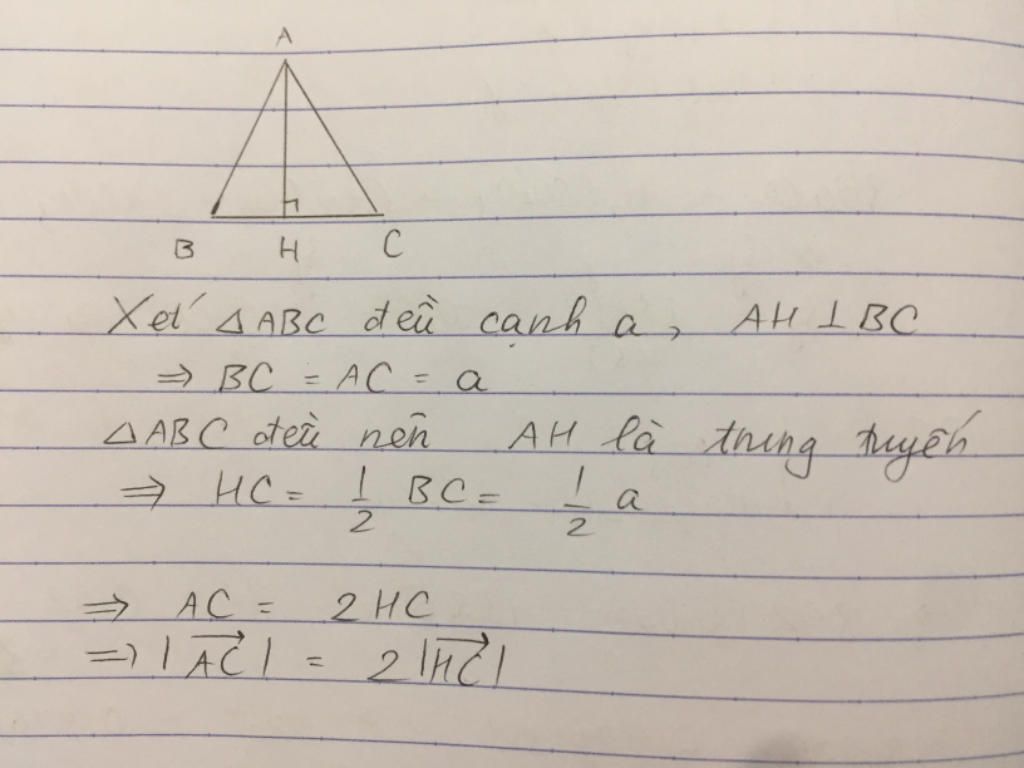 A
B H C
Xét △ABC đều cạnh a, AH ⊥ BC
⇒ BC = AC = a
△ABC đều nên AH là trung tuyến
⇒ HC = 1/2 BC = 1/2 a
⇒ AC = 2HC
⇒ |\overrightarrow{AC}| = 2|\overrightarrow{HC}|